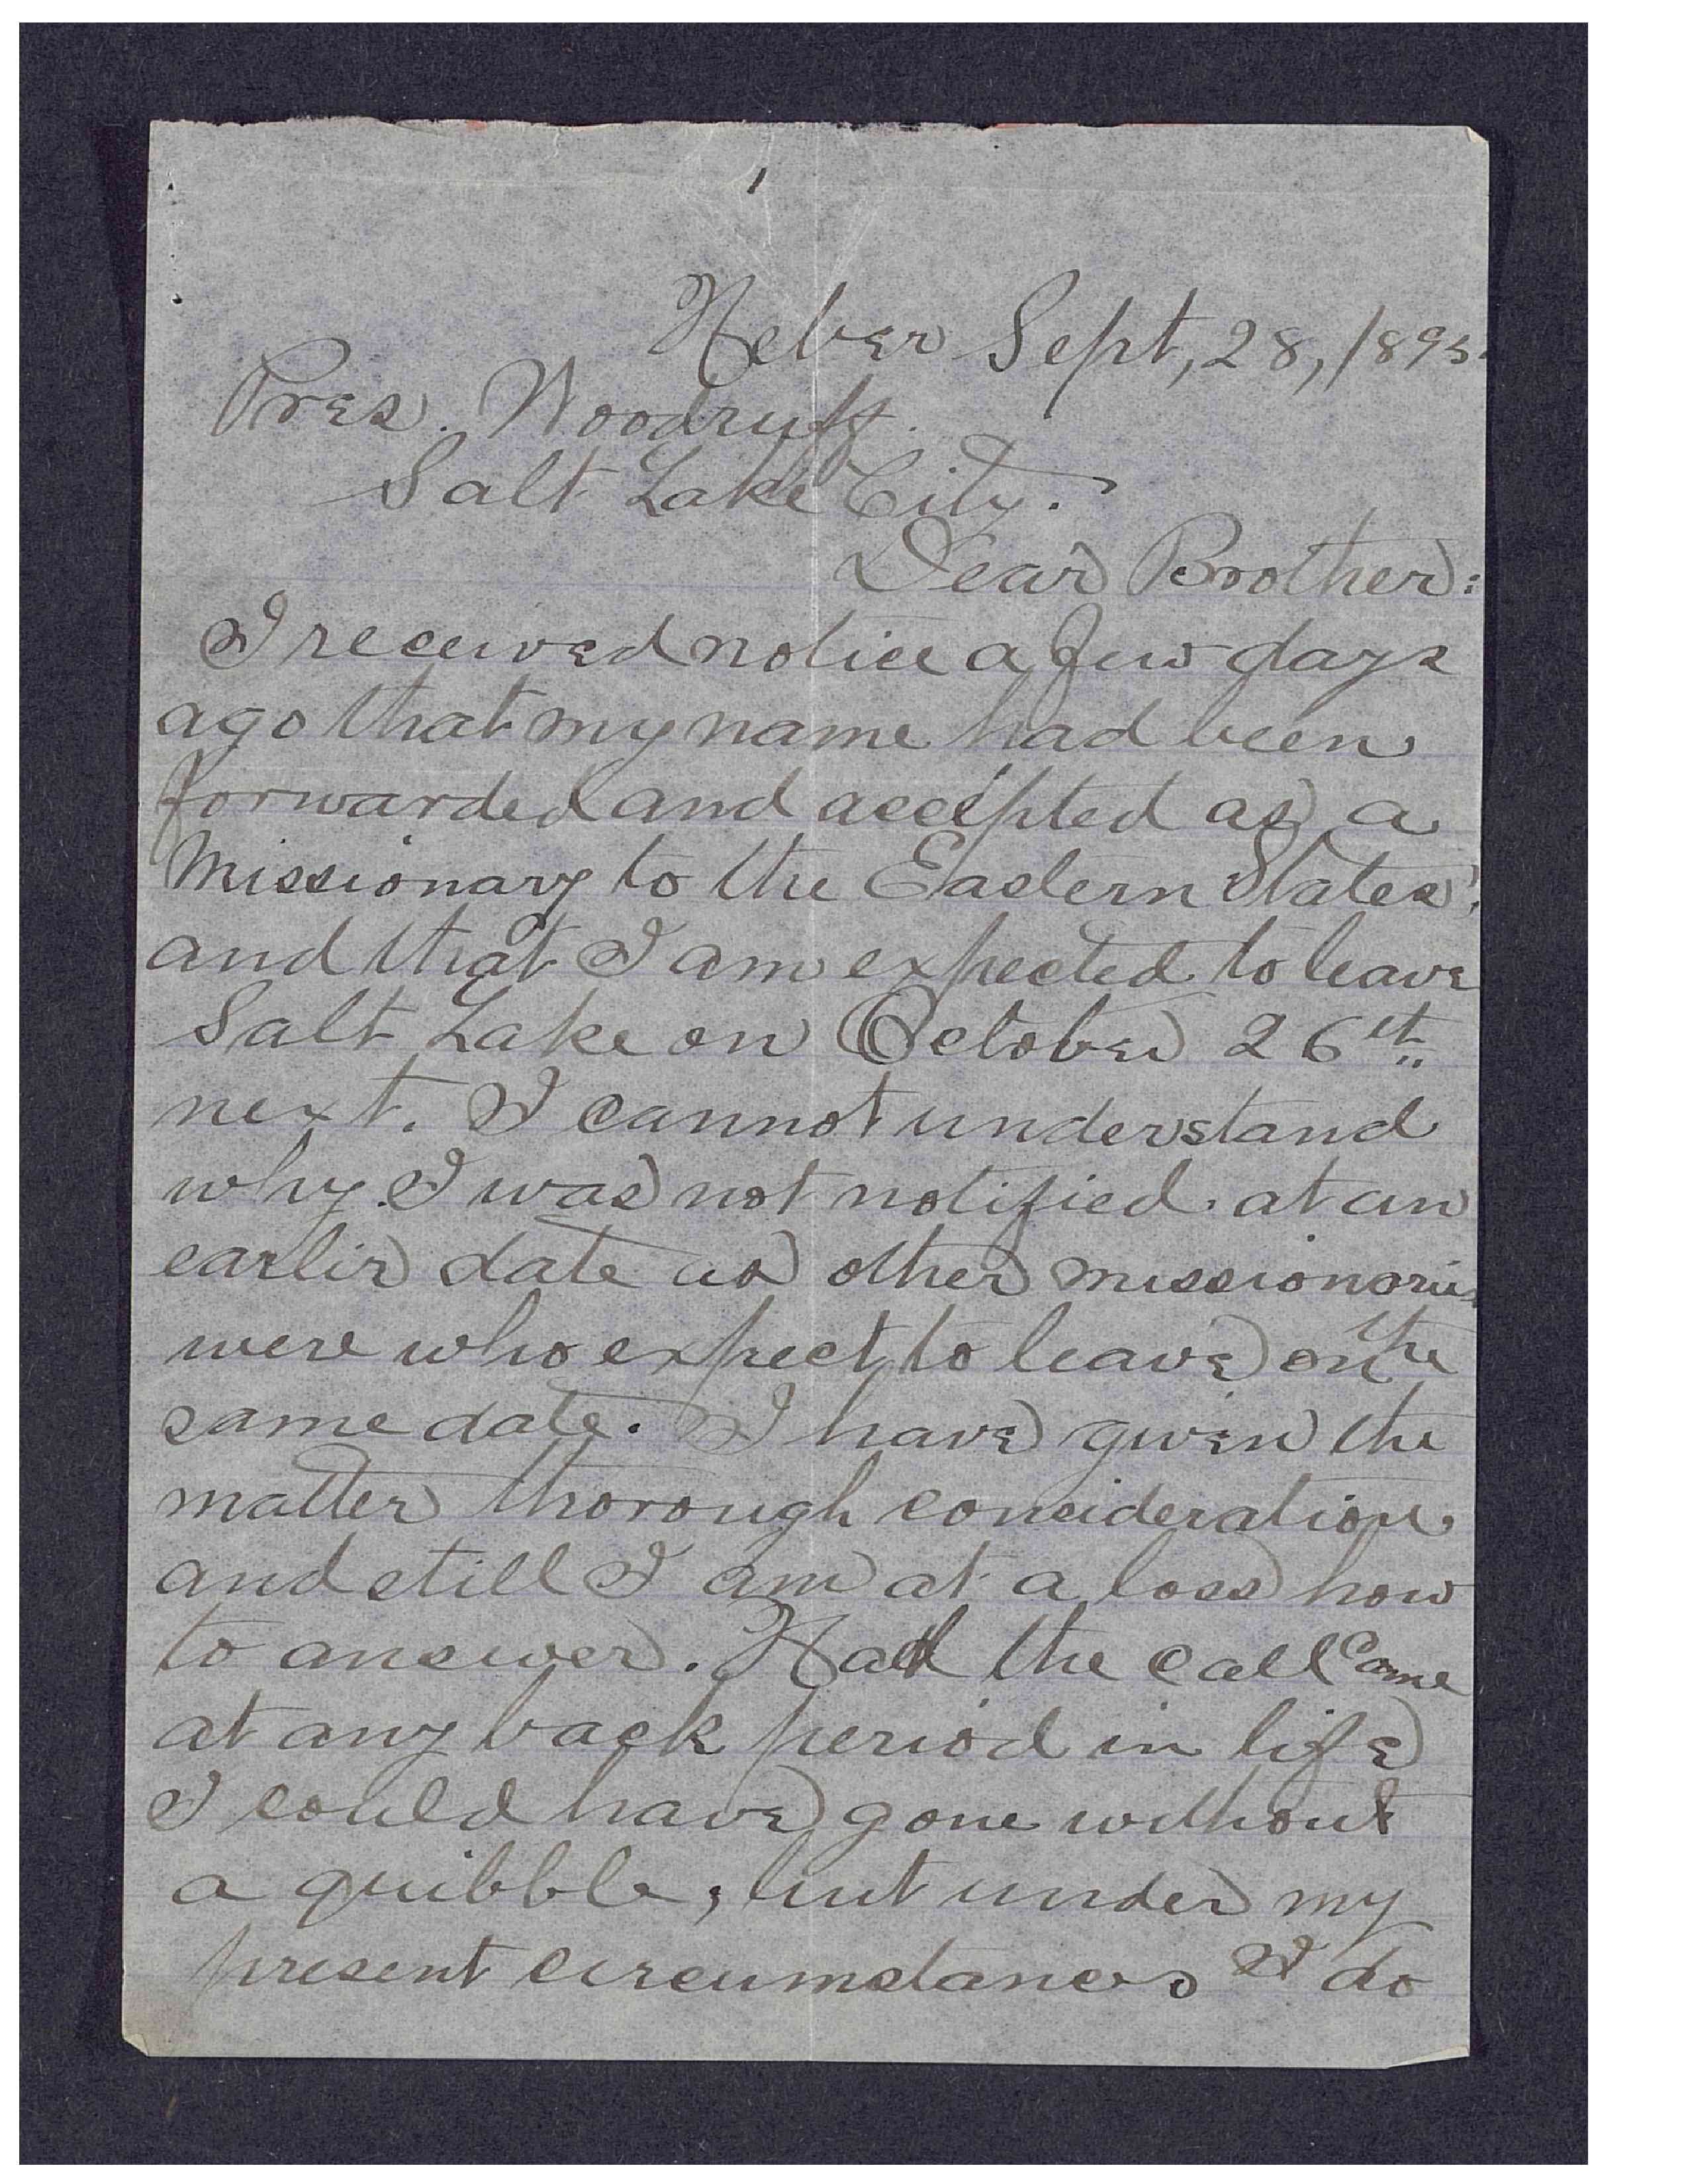 Heber Sept, 28, 1895.
Pres. Woodruff.
Salt Lake City.
Dear Brother:
I received notice a few days
ago that my name had been
forwarded and accepted as a
Missionary to the Eastern States,
and that I am expected to leave
Salt Lake on October 26th
next. I cannot understand
why I was not notified at an
earlier date as other missionaries
were who expect to leave on the
same date. I have given the
matter thorough consideration
and still I am at a loss how
to answer. Had the call come
at any back period in life
I could have gone without
a quibble, but under my
present circumstances I do